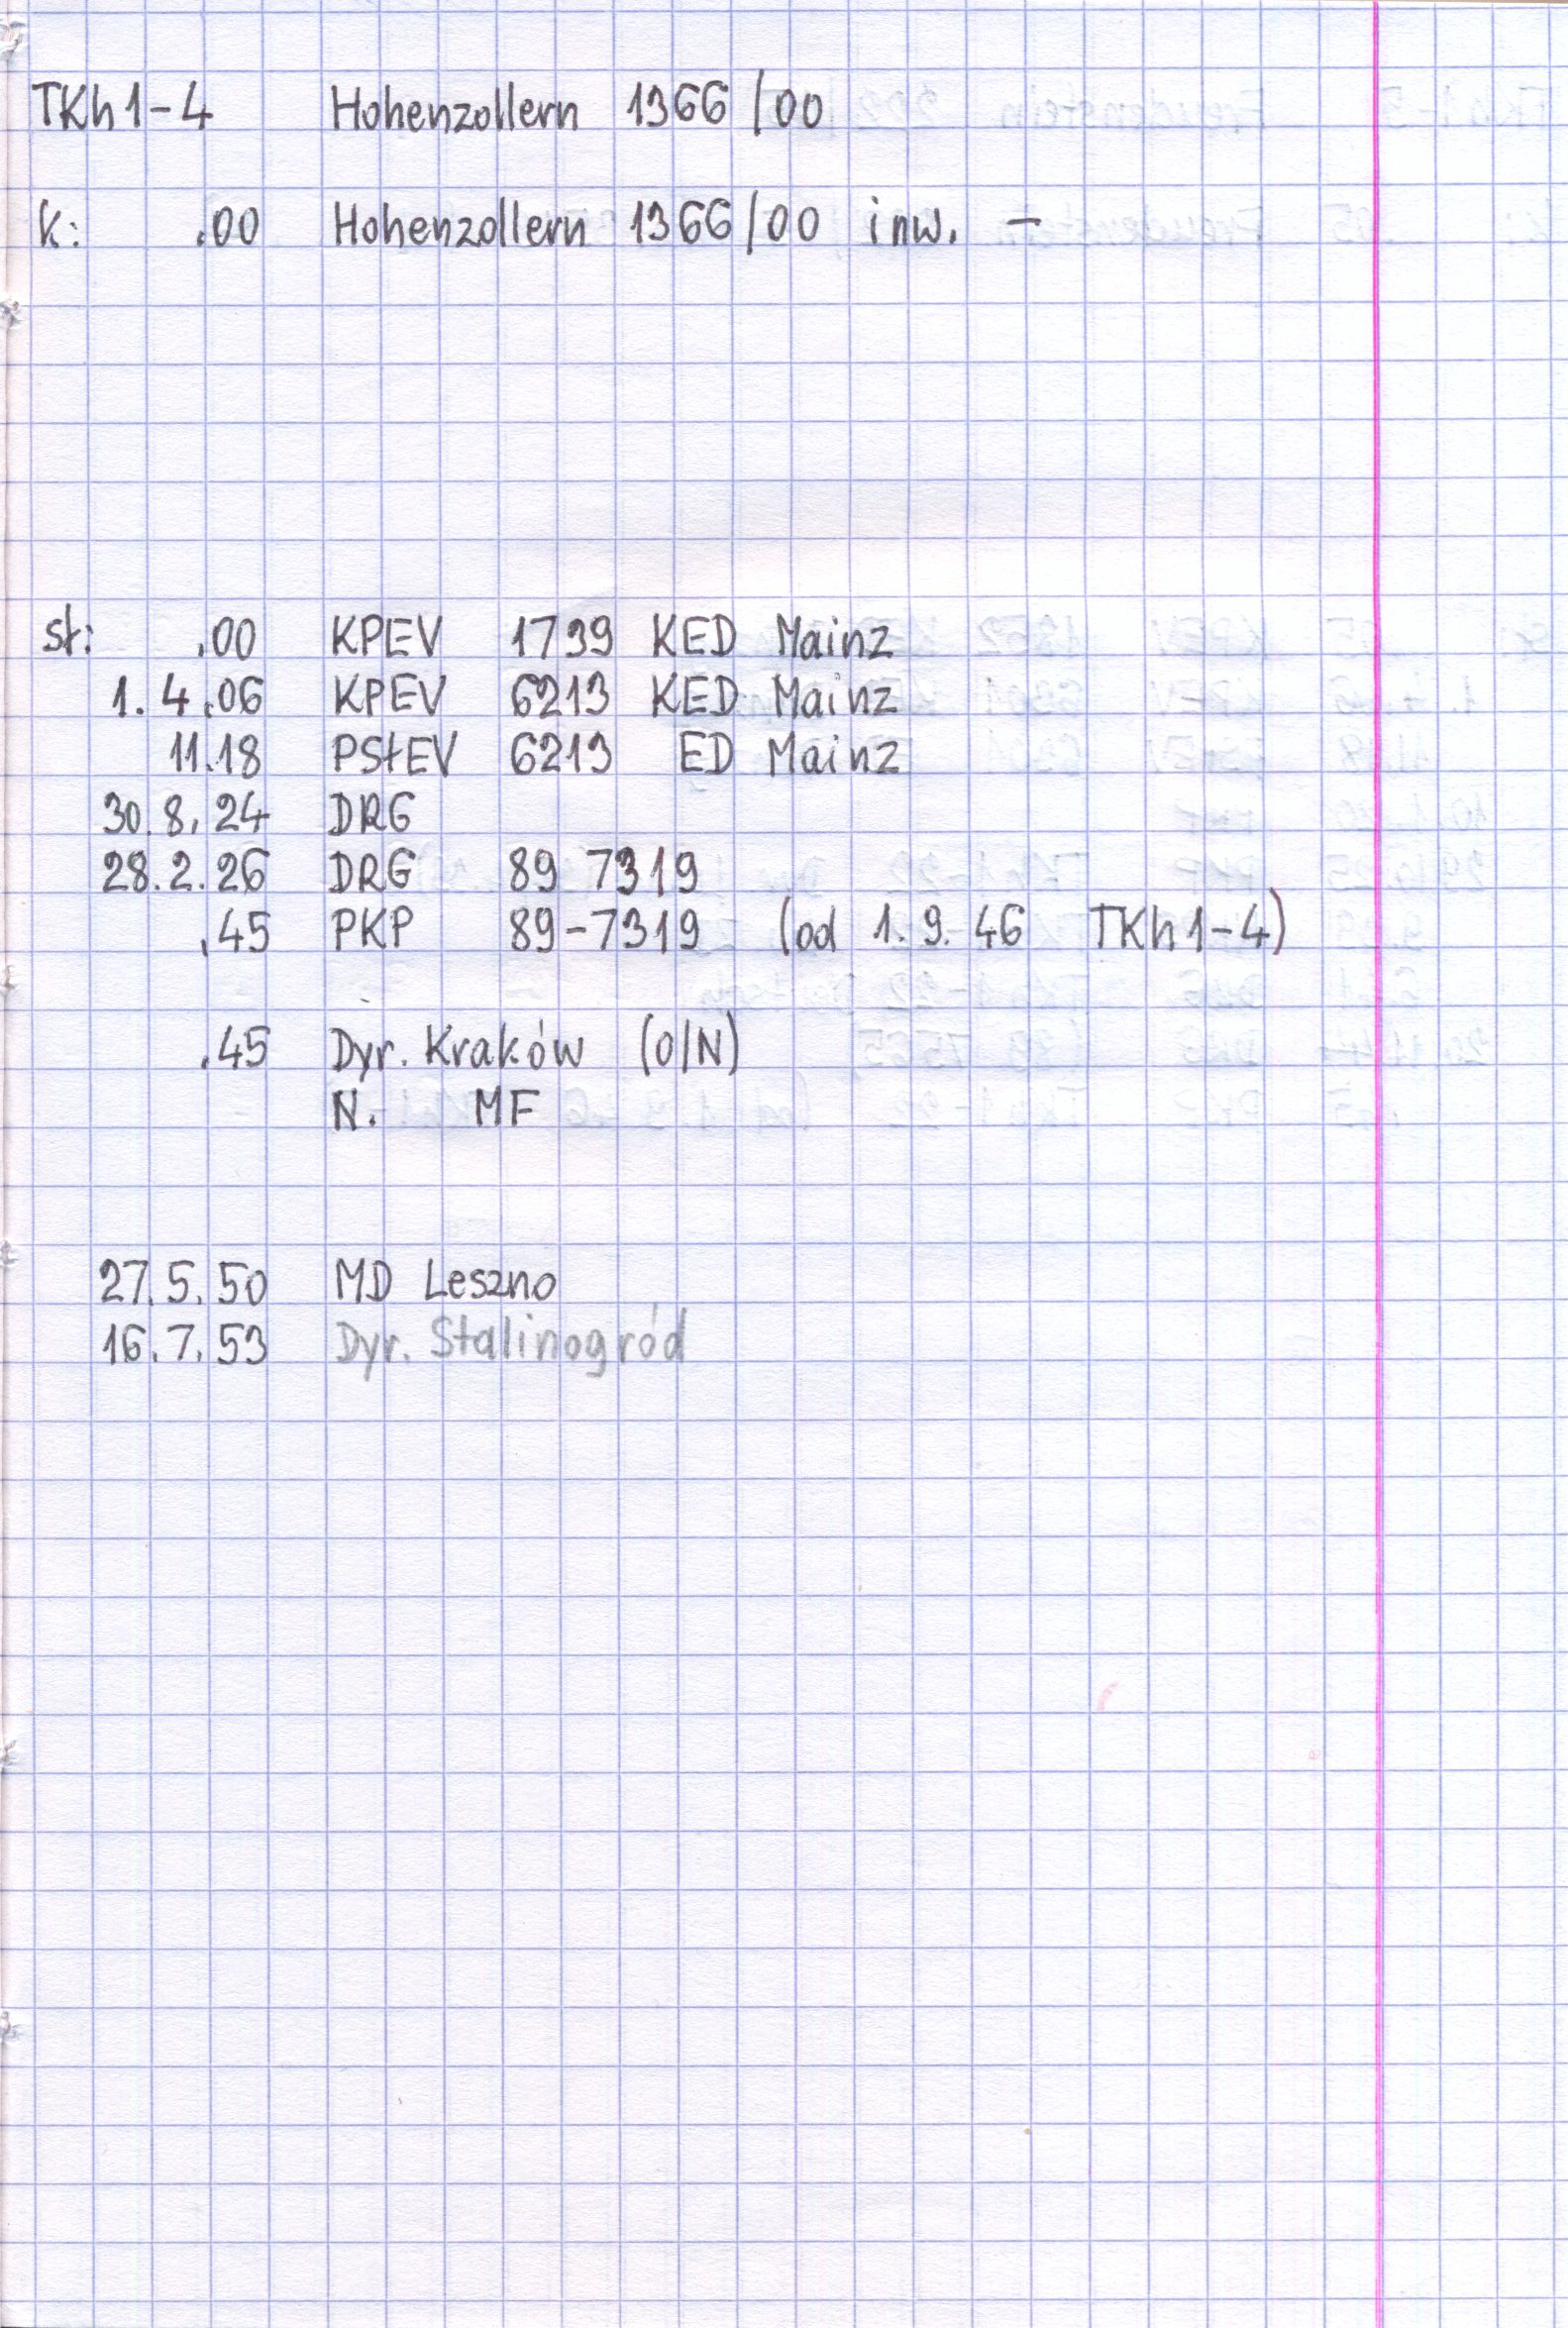 TKh1-4 Hohenzollern 1366/00
k: .00 Hohenzollern 1366/00 inw. -
st: .00 KPEV 1739 KED Mainz
1.4.06 KPEV 6213 KED Mainz
11.18 PStEV 6213 ED Mainz
30.8.24 DRG
28.2.26 DRG 89 7319
.45 PKP 89-7319 (od 1.9.46 TKh1-4)
.45 Dyr. Kraków (O/N)
N. MF
27.5.50 MD Leszno
16.7.53 Dyr. Stalinogród